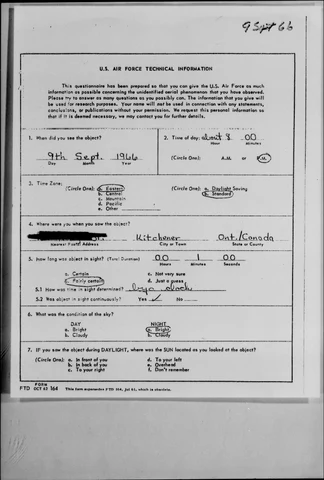 9 Sept 66
U.S. AIR FORCE TECHNICAL INFORMATION
This questionnaire has been prepared so that you can give the U.S. Air Force as much
information as possible concerning the unidentified aerial phenomenon that you have observed.
Please try to answer as many questions as you possibly can. The information that you give will
be used for research purposes. Your name will not be used in connection with any statements,
conclusions, or publications without your permission. We request this personal information so
that if it is deemed necessary, we may contact you for further details.
1. When did you see the object?
9th Sept. 1966
Day Month Year
2. Time of day: about 8 00
Hour Minutes
(Circle One): A.M. or P.M.
3. Time Zone:
(Circle One): a. Eastern
b. Central
c. Mountain
d. Pacific
e. Other
(Circle One): a. Daylight Saving
b. Standard
4. Where were you when you saw the object?
Kitchener Ont./Canada
Nearest Postal Address City or Town State or County
5. How long was object in sight? (Total Duration) 00 1 00
Hours Minutes Seconds
a. Certain c. Not very sure
b. Fairly certain d. Just a guess
5.1 How was time in sight determined?
5.2 Was object in sight continuously? Yes ✓ No
6. What was the condition of the sky?
DAY NIGHT
a. Bright a. Bright
b. Cloudy b. Cloudy
7. IF you saw the object during DAYLIGHT, where was the SUN located as you looked at the object?
(Circle One): a. In front of you d. To your left
b. In back of you e. Overhead
c. To your right f. Don't remember
FORM
FTD OCT 62 164 This form supersedes FTD 164, Jul 61, which is obsolete.